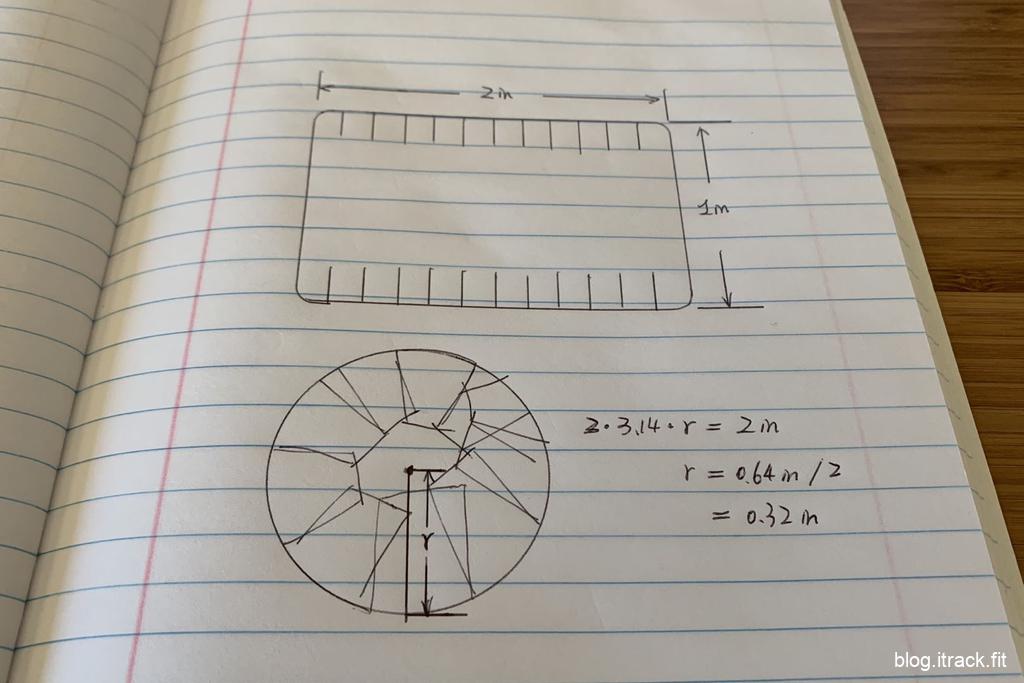 2in
1in
2·3.14·r = 2in
r = 0.64in/2
= 0.32in
r
blog.itrack.fit